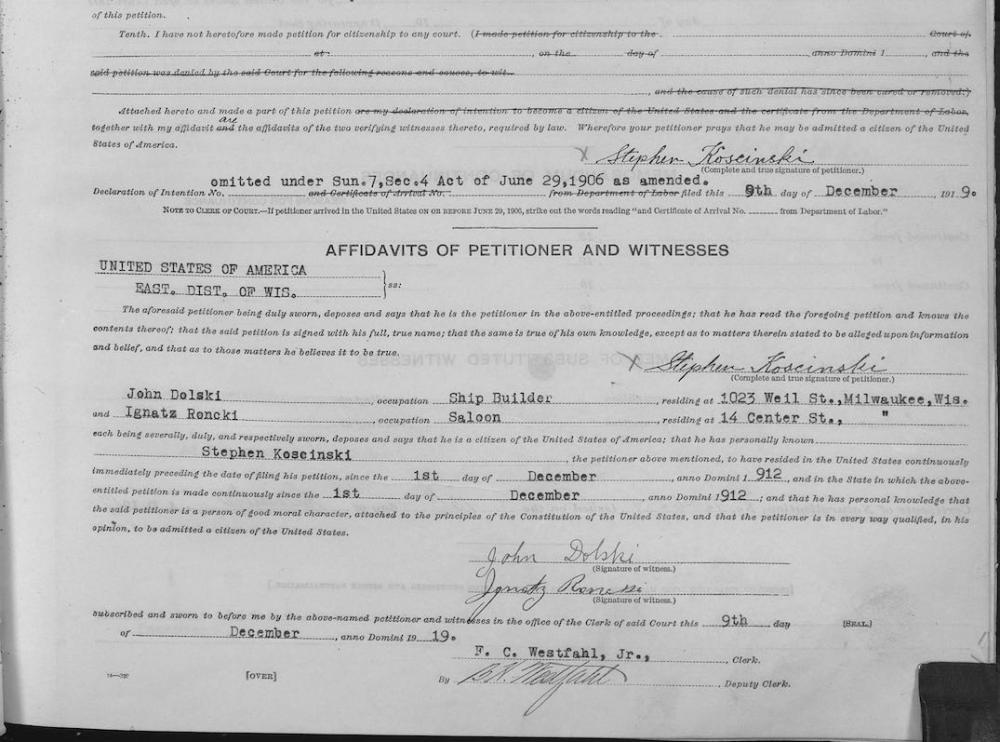 of this petition.
Tenth. I have not heretofore made petition for citizenship to any court. (I made petition for citizenship to the Court of
at , on the day of , anno Domini 1 , and the
said petition was denied by the said Court for the following reasons and causes, to wit
, and the cause of such denial has since been cured or removed.)
Attached hereto and made a part of this petition are my declaration of intention to become a citizen of the United States and the certificate from the Department of Labor,
are
together with my affidavit and the affidavits of the two verifying witnesses thereto, required by law. Wherefore your petitioner prays that he may be admitted a citizen of the United
States of America.
X Stephen Koscinski
(Complete and true signature of petitioner.)
omitted under Sun.7,Sec.4 Act of June 29,1906 as amended.
Declaration of Intention No. and Certificate of Arrival No. from Department of Labor filed this 9th day of December , 1919.
NOTE TO CLERK OF COURT.—If petitioner arrived in the United States ON OR BEFORE JUNE 29, 1906, strike out the words reading "and Certificate of Arrival No. from Department of Labor."
AFFIDAVITS OF PETITIONER AND WITNESSES
UNITED STATES OF AMERICA
EAST. DIST. OF WIS. } ss:
The aforesaid petitioner being duly sworn, deposes and says that he is the petitioner in the above-entitled proceedings; that he has read the foregoing petition and knows the
contents thereof; that the said petition is signed with his full, true name; that the same is true of his own knowledge, except as to matters therein stated to be alleged upon information
and belief, and that as to those matters he believes it to be true.
X Stephen Koscinski
(Complete and true signature of petitioner.)
John Dolski , occupation Ship Builder , residing at 1023 Weil St.,Milwaukee,Wis.
and Ignatz Roncki , occupation Saloon , residing at 14 Center St., "
each being severally, duly, and respectively sworn, deposes and says that he is a citizen of the United States of America; that he has personally known
Stephen Koscinski , the petitioner above mentioned, to have resided in the United States continuously
immediately preceding the date of filing his petition, since the 1st day of December , anno Domini 1 912 , and in the State in which the above-
entitled petition is made continuously since the 1st day of December , anno Domini 1912 ; and that he has personal knowledge that
the said petitioner is a person of good moral character, attached to the principles of the Constitution of the United States, and that the petitioner is in every way qualified, in his
opinion, to be admitted a citizen of the United States.
John Dolski
(Signature of witness.)
Ignatz Roncki
(Signature of witness.)
Subscribed and sworn to before me by the above-named petitioner and witnesses in the office of the Clerk of said Court this 9th day [SEAL.]
of December , anno Domini 19 19.
F. C. Westfahl, Jr., , Clerk.
[OVER] By Westfahl , Deputy Clerk.